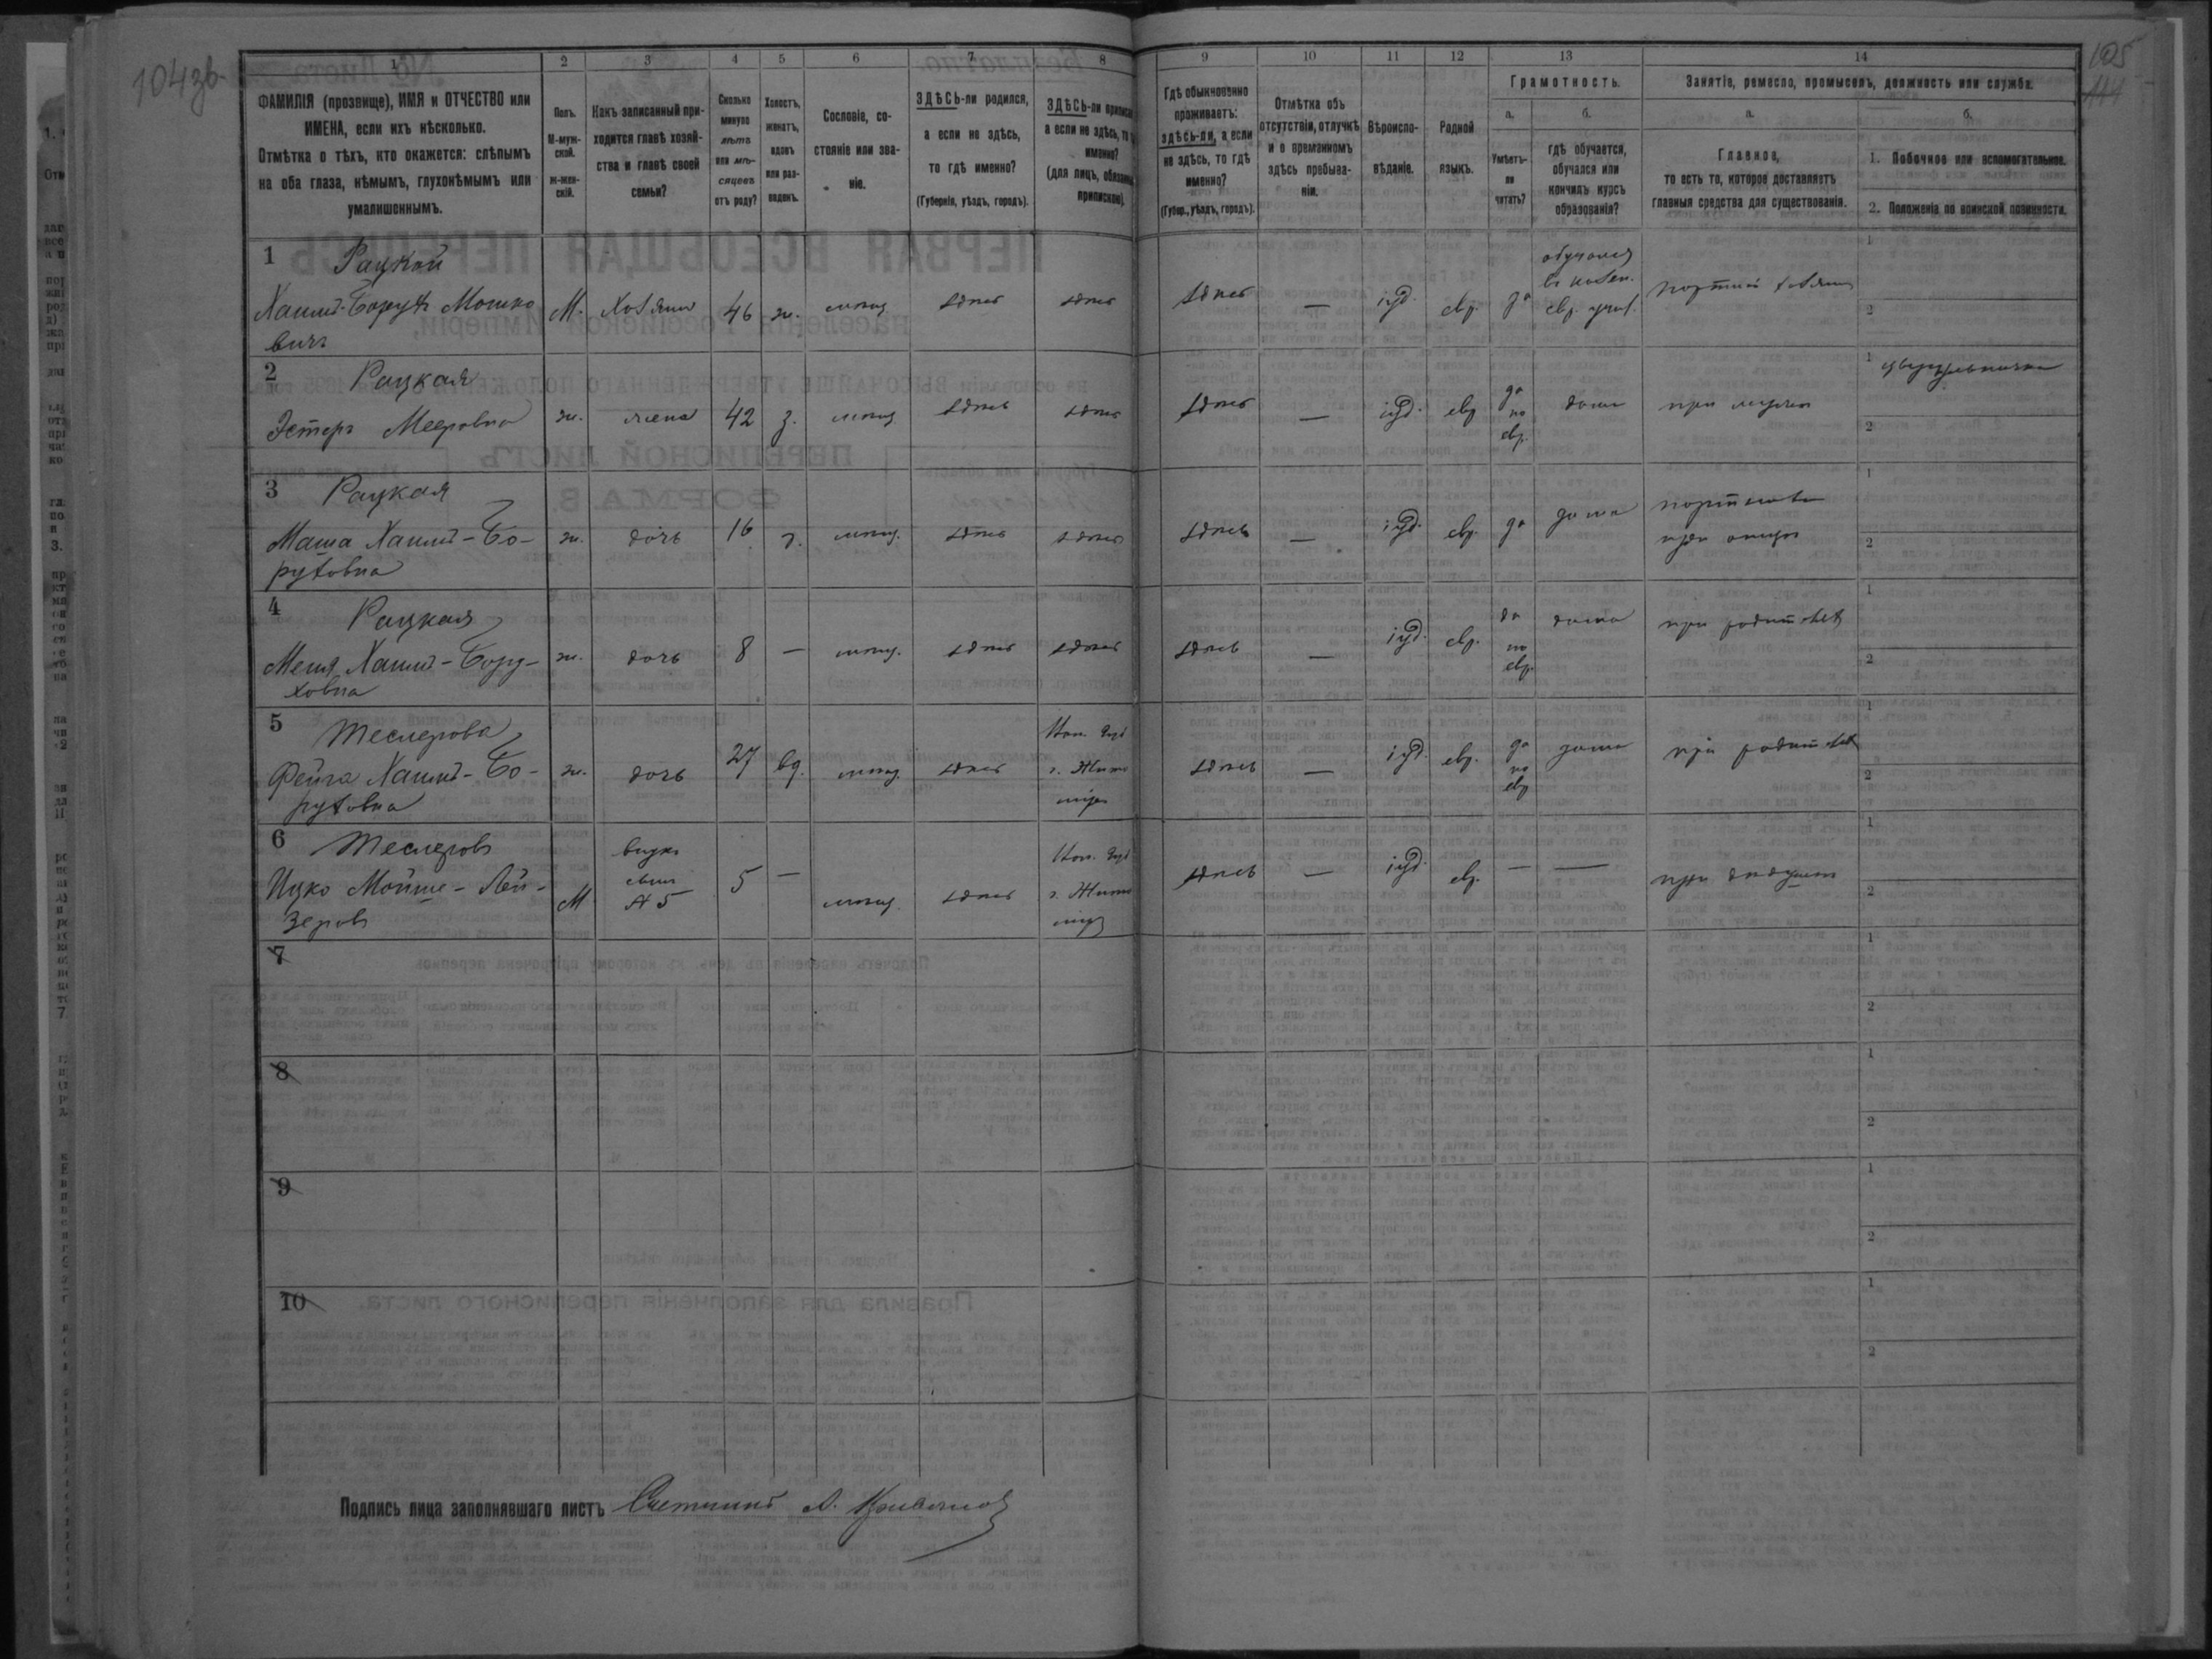 104зв.
105
144
1
2
3
4
5
6
7
8
9
10
11
12
13
14
ФАМИЛІЯ (прозвище), ИМЯ и ОТЧЕСТВО или
ИМЕНА, если ихъ нѣсколько.
Отмѣтка о тѣхъ, кто окажется: слѣпымъ
на оба глаза, нѣмымъ, глухонѣмымъ или
умалишеннымъ.
Полъ.
М-муж-
ской.
ж-жен-
скій.
Какъ записанный при-
ходится главѣ хозяй-
ства и главѣ своей
семьи?
Сколько
минуло
лѣтъ
или мѣ-
сяцевъ
отъ роду?
Холостъ,
женатъ,
вдовъ
или раз-
веденъ.
Сословіе, со-
стояніе или зва-
ніе.
ЗДѢСЬ-ли родился,
а если не здѣсь,
то гдѣ именно?
(Губернія, уѣздъ, городъ).
ЗДѢСЬ-ли приписанъ
а если не здѣсь, то
именно?
(для лицъ, обязанныхъ
припискою).
Гдѣ обыкновенно
проживаетъ:
здѣсь-ли, а если
не здѣсь, то гдѣ
именно?
(Губер., уѣздъ, городъ).
Отмѣтка объ
отсутствіи, отлучкѣ
и о временномъ
здѣсь пребыва-
ніи.
Вѣроиспо-
вѣданіе.
Родной
языкъ.
Грамотность.
а.
Умѣетъ-
ли
читать?
б.
гдѣ обучается,
обучался или
кончилъ курсъ
образованія?
Занятіе, ремесло, промыселъ, должность или служба.
а.
Главное,
то есть то, которое доставляетъ
главныя средства для существованія.
б.
1. Побочное или вспомогательное.
2. Положеніе по воинской повинности.
1 Рацкой
Хаимъ-Борухъ Мошко
вичъ
М. Хозяинъ 46 ж. мѣщ. здѣсь здѣсь здѣсь — іуд. евр. да
обучался
въ казен.
евр. учил.
портной хозяинъ
2 Рацкая
Эстеръ Мееровна
ж. жена 42 з. мѣщ. здѣсь здѣсь здѣсь — іуд. евр.
да
по
евр.
дома при мужѣ
3 Рацкая
Маша Хаимъ-Бо-
руховна
ж. дочь 16 д. мѣщ. здѣсь здѣсь здѣсь — іуд. евр. да дома
при отцѣ
4 Рацкая
Хаимъ-Бору-
ховна
ж. дочь 8 — мѣщ. здѣсь здѣсь здѣсь — іуд. евр.
да
по
евр.
дома при родителѣ
5 Теслерова
Фейга Хаимъ-Бо-
руховна
ж. дочь 27 вд. мѣщ. здѣсь
г. Жито
міръ
здѣсь — іуд. евр.
да
по
евр
дома при родителѣ
6 Теслеръ
Ицко Мойше-Лей-
зеровъ
М
внукъ
сынъ
№ 5
5 — мѣщ. здѣсь
г. Жито
міръ
здѣсь — іуд. евр. — — при дѣдушкѣ
7
8
9
10
1
2
1
2
1
2
1
2
1
2
1
2
1
2
1
2
1
2
1
2
Подпись лица заполнявшаго листъ Счетчикъ А.